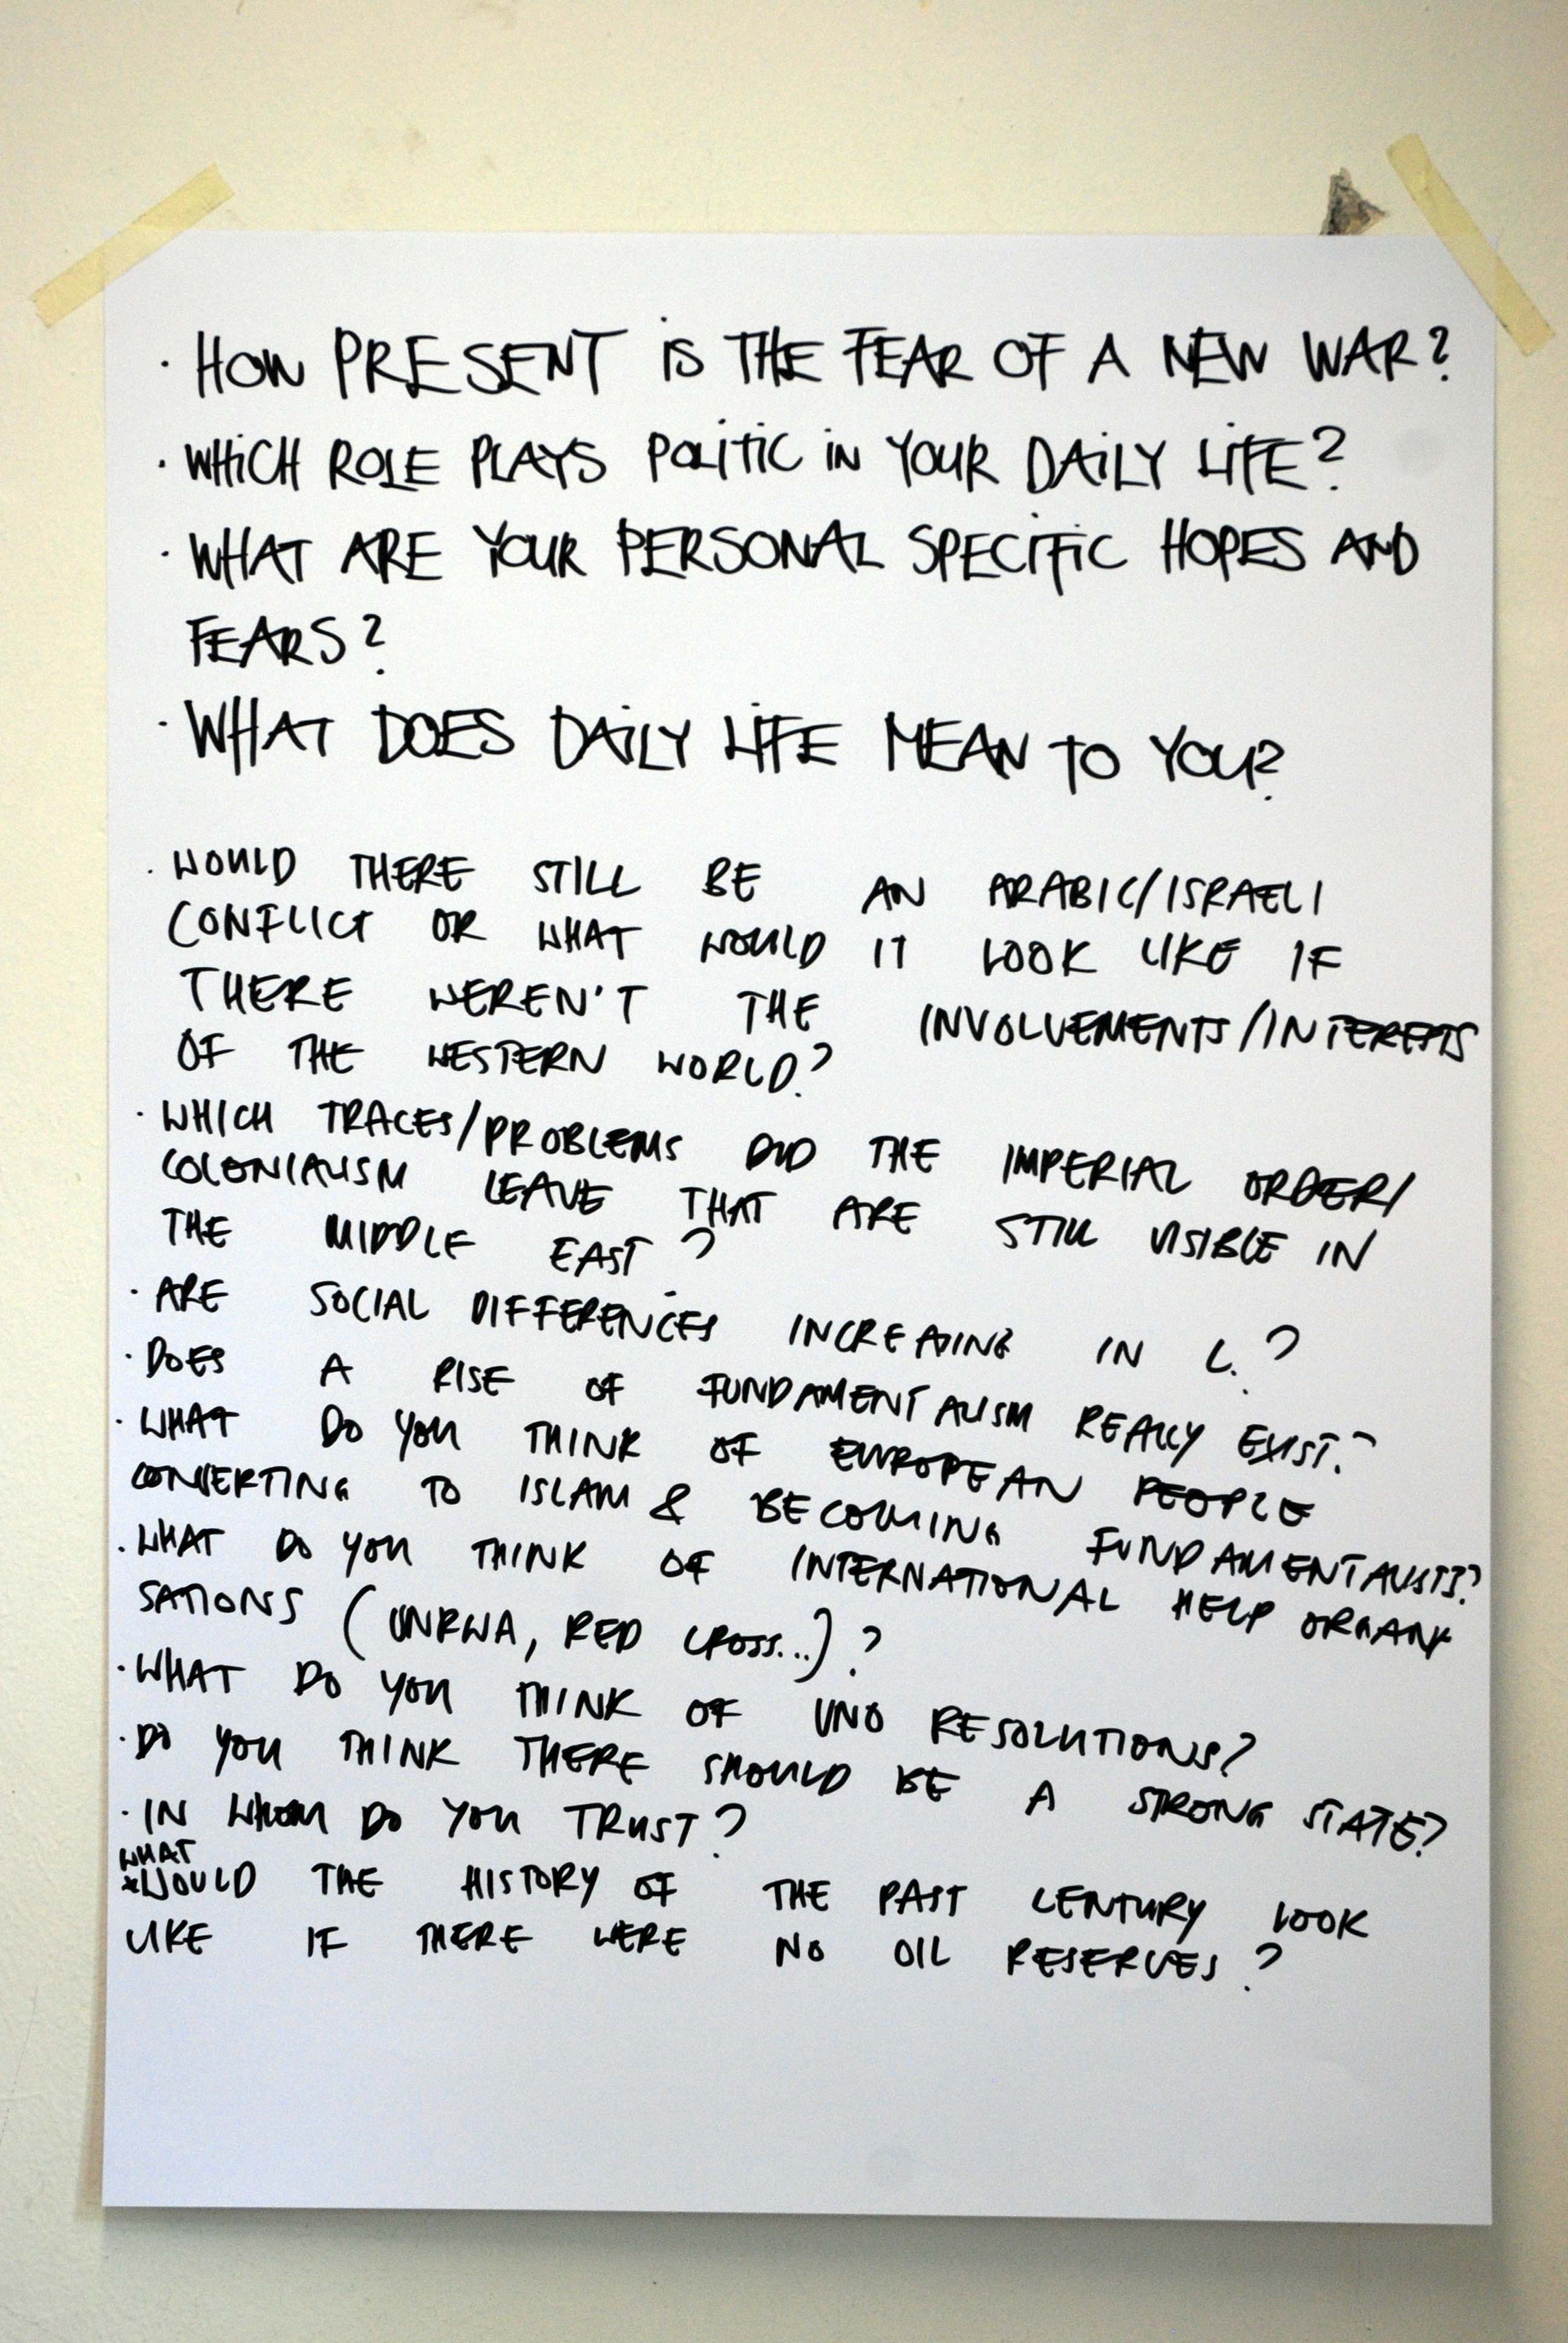 · HOW PRESENT IS THE FEAR OF A NEW WAR?
· WHICH ROLE PLAYS POLITIC IN YOUR DAILY LIFE?
· WHAT ARE YOUR PERSONAL SPECIFIC HOPES AND
FEARS?
· WHAT DOES DAILY LIFE MEAN TO YOU?
· WOULD THERE STILL BE AN ARABIC/ISRAELI
CONFLICT OR WHAT WOULD IT LOOK LIKE IF
THERE WEREN'T THE INVOLVEMENTS/INTERESTS
OF THE WESTERN WORLD?
· WHICH TRACES/PROBLEMS DID THE IMPERIAL ORDER/
COLONIALISM LEAVE THAT ARE STILL VISIBLE IN
THE MIDDLE EAST?
· ARE SOCIAL DIFFERENCES INCREASING IN L.?
· DOES A RISE OF FUNDAMENTALISM REALLY EXIST?
· WHAT DO YOU THINK OF EUROPEAN PEOPLE
CONVERTING TO ISLAM & BECOMING FUNDAMENTALISTS?
· WHAT DO YOU THINK OF INTERNATIONAL HELP ORGANI
SATIONS (UNRWA, RED CROSS...)?
· WHAT DO YOU THINK OF UNO RESOLUTIONS?
· DO YOU THINK THERE SHOULD BE A STRONG STATE?
· IN WHOM DO YOU TRUST?
WHAT
*WOULD THE HISTORY OF THE PAST CENTURY LOOK
LIKE IF THERE WERE NO OIL RESERVES?